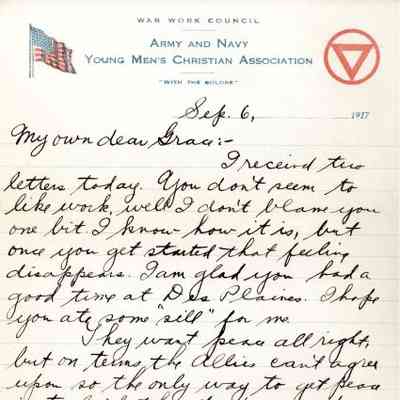 WAR WORK COUNCIL
ARMY AND NAVY
YOUNG MEN'S CHRISTIAN ASSOCIATION
"WITH THE COLORS"
Sep. 6, 1917
My own dear Grace:-
I receivd two
letters today. You don't seem to
like work, well I don't blame you
one bit. I know how it is, but
once you get started that feeling
disappears. I am glad you had a
good time at Des Plaines. I hope
you ate some "sill" for me.
They want peace all right,
but on terms the Allies can't agree
upon so the only way to get peace